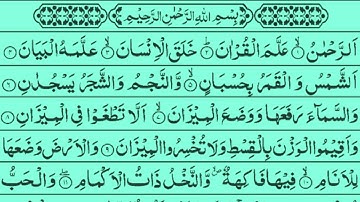 بِسْمِ اللهِ الرَّحْمٰنِ الرَّحِيْمِ
اَلرَّحْمٰنُ ۙ﴿۱﴾ عَلَّمَ الْقُرْاٰنَ ؕ﴿۲﴾ خَلَقَ الْاِنْسَانَ ۙ﴿۳﴾ عَلَّمَهُ الْبَيَانَ ﴿۴﴾
اَلشَّمْسُ وَ الْقَمَرُ بِحُسْبَانٍ ۪﴿۵﴾ وَّ النَّجْمُ وَ الشَّجَرُ يَسْجُدٰنِ ﴿۶﴾
وَ السَّمَآءَ رَفَعَهَا وَ وَضَعَ الْمِيْزَانَ ۙ﴿۷﴾ اَلَّا تَطْغَوْا فِى الْمِيْزَانِ ﴿۸﴾
وَ اَقِيْمُوا الْوَزْنَ بِالْقِسْطِ وَ لَا تُخْسِرُوا الْمِيْزَانَ ﴿۹﴾ وَ الْاَرْضَ وَضَعَهَا
لِلْاَنَامِ ۙ﴿۱۰﴾ فِيْهَا فَاكِهَةٌ ۪ۙ وَّ النَّخْلُ ذَاتُ الْاَكْمَامِ ۖ﴿۱۱﴾ وَ الْحَبُّ